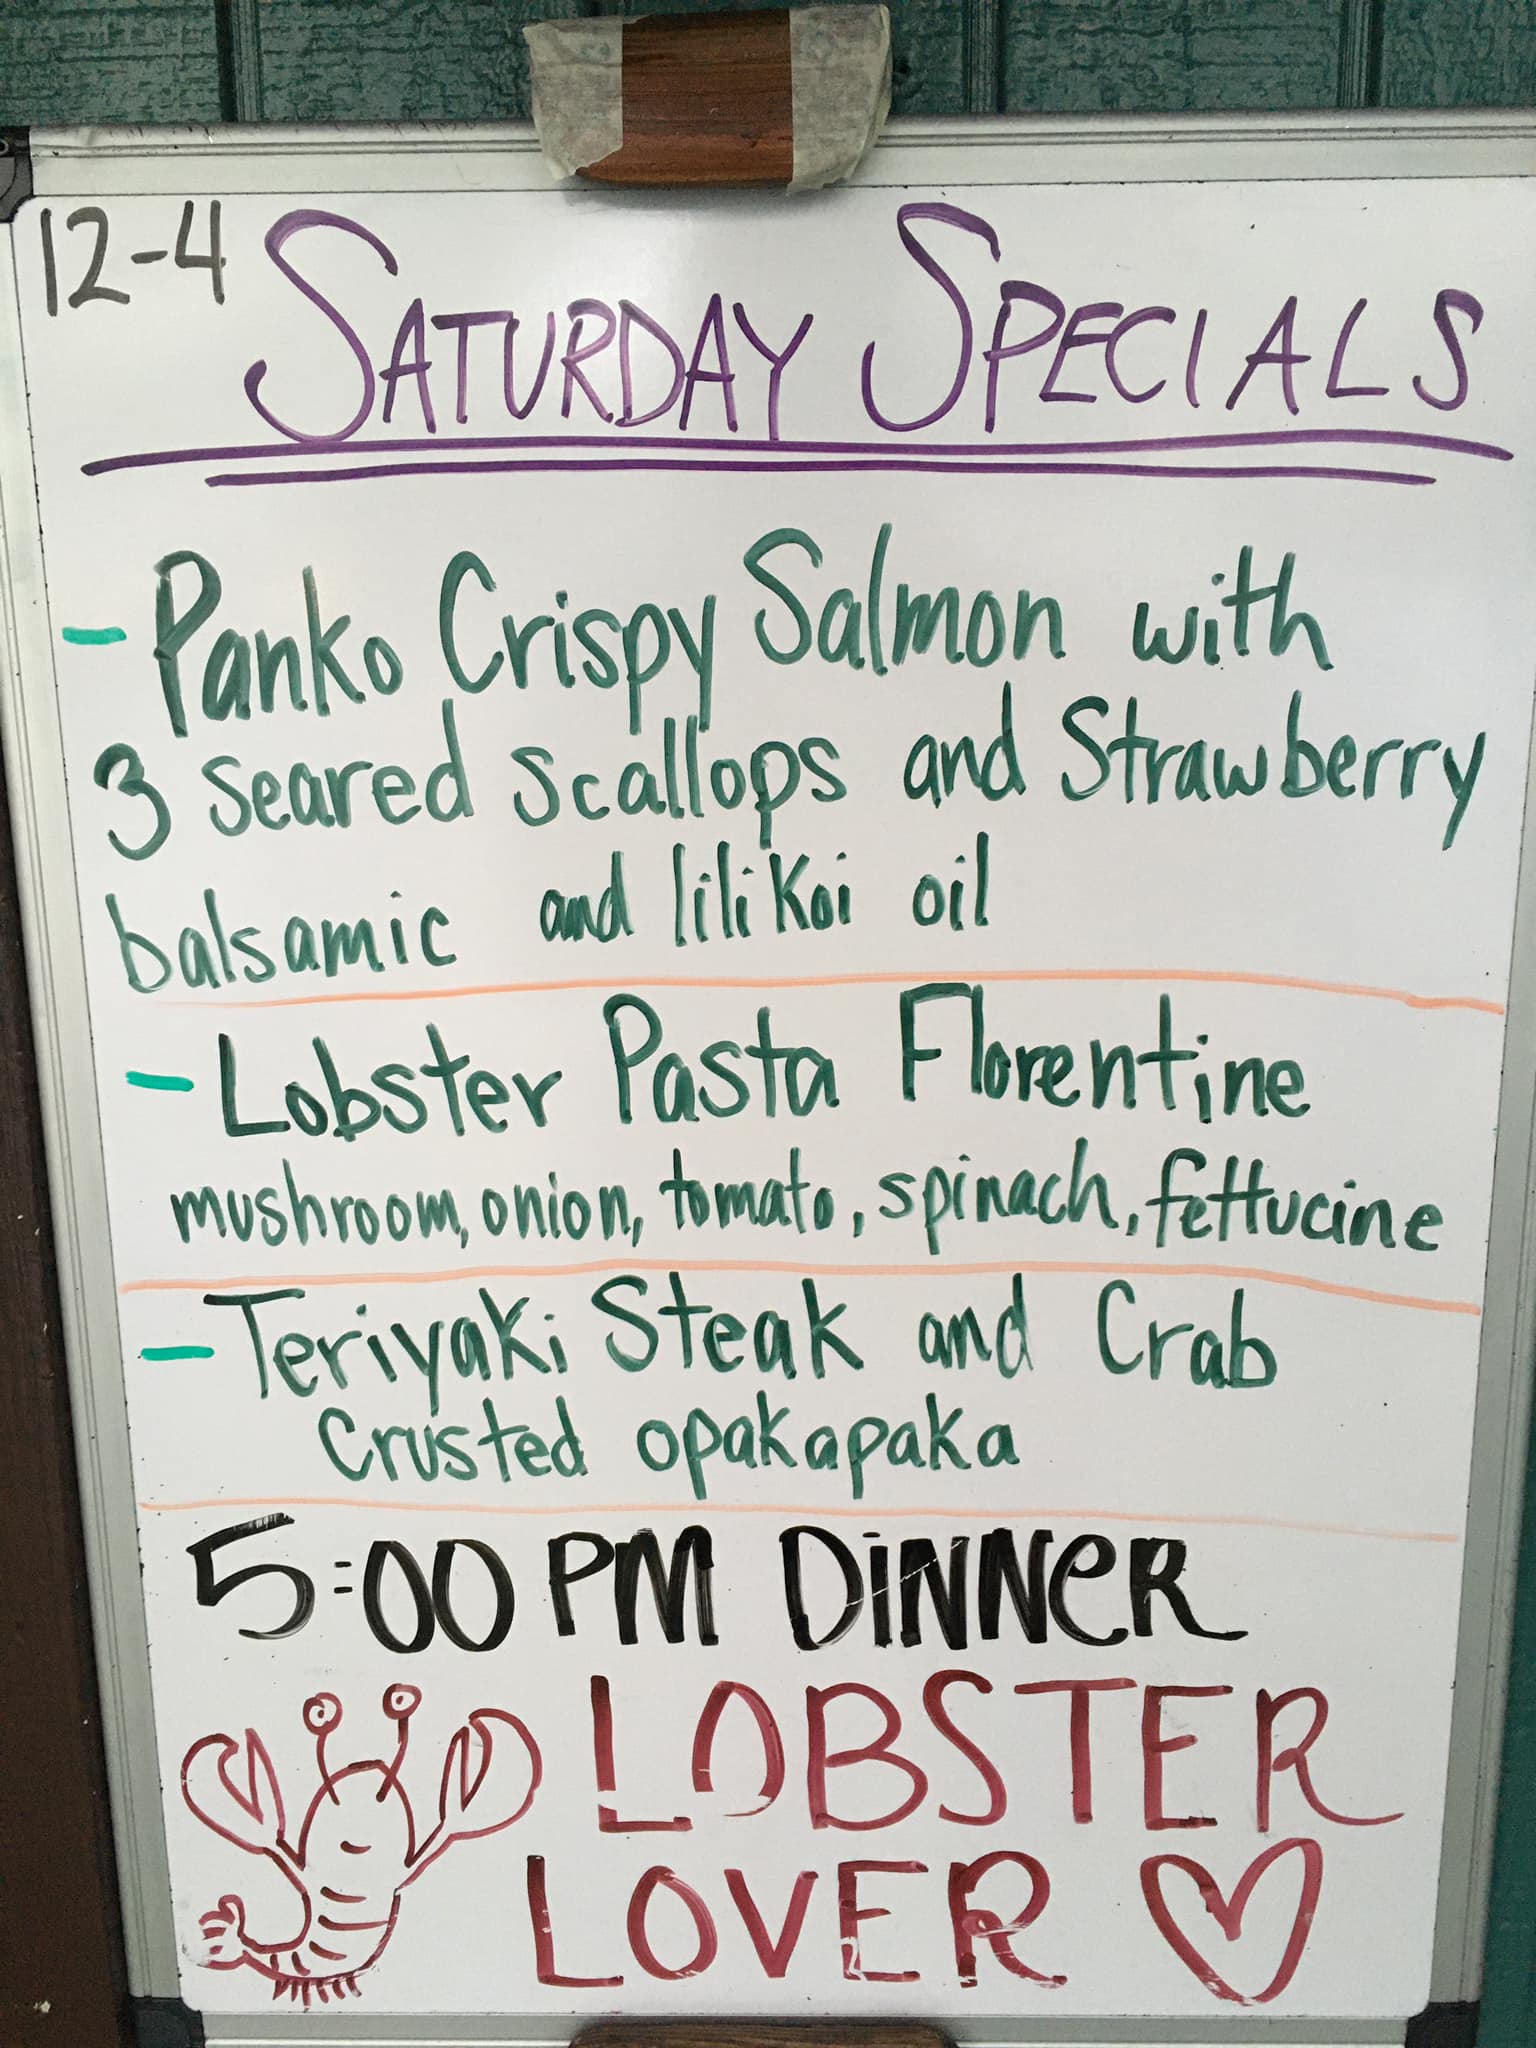 12-4
SATURDAY SPECIALS
- Panko Crispy Salmon with
3 seared scallops and Strawberry
balsamic and lilikoi oil
- Lobster Pasta Florentine
mushroom, onion, tomato, spinach, fettucine
- Teriyaki Steak and Crab
Crusted opakapaka
5:00 PM DINNER
LOBSTER
LOVER